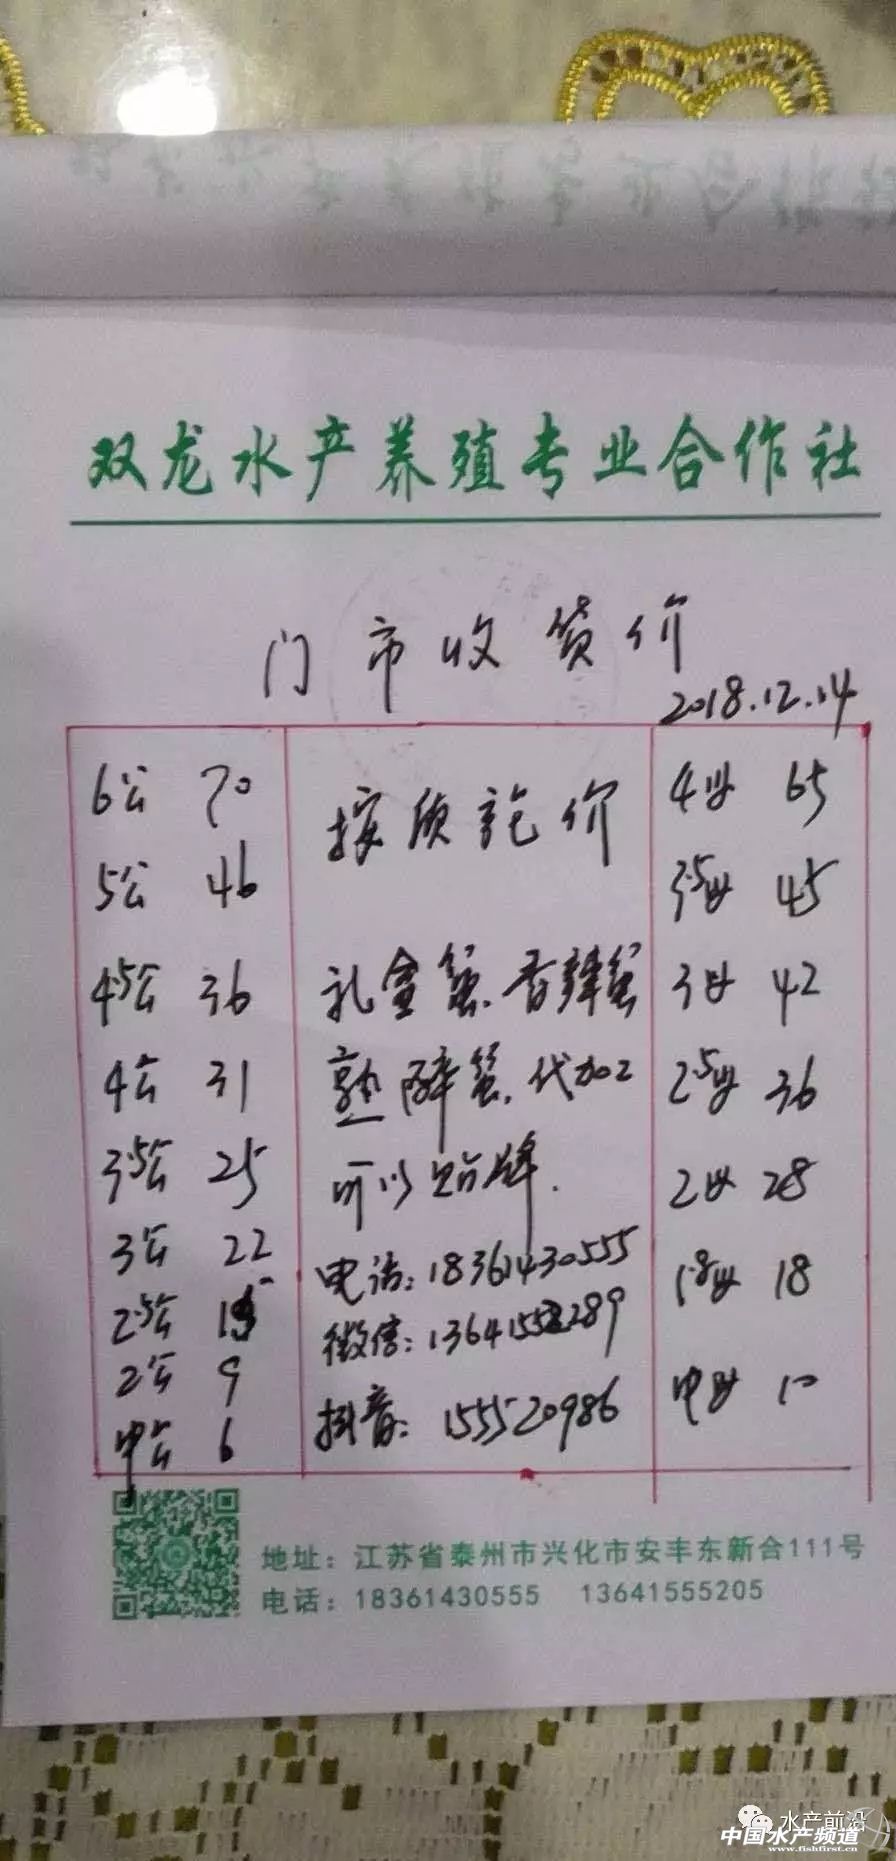 双龙水产养殖专业合作社
门市收货价
2018.12.14
6公 70
5公 46
4.5公 36
4公 31
3.5公 25
3公 22
2.5公
2公 9
中公 6
按质论价
礼盒蟹、香辣蟹
熟醉蟹、代加工
可以贴牌.
电话：18361430555
微信：
抖音：155520986
4母 65
3.5母 45
3母 42
2.5母 36
2母 28
1.8母 18
中母 10
地址：江苏省泰州市兴化市安丰东新合111号
电话：18361430555 13641555205
水产前沿
中国水产频道
www.fishfirst.cn